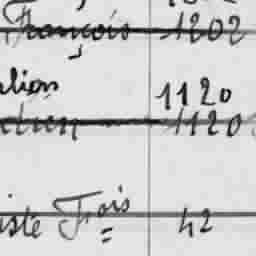 François 1202
alien 1120
1120
iste Trois 42